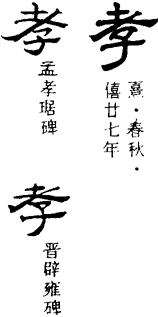 孝
熹·春秋·
僖廿七年
孝
孟孝琚碑
孝
晋辟雍碑